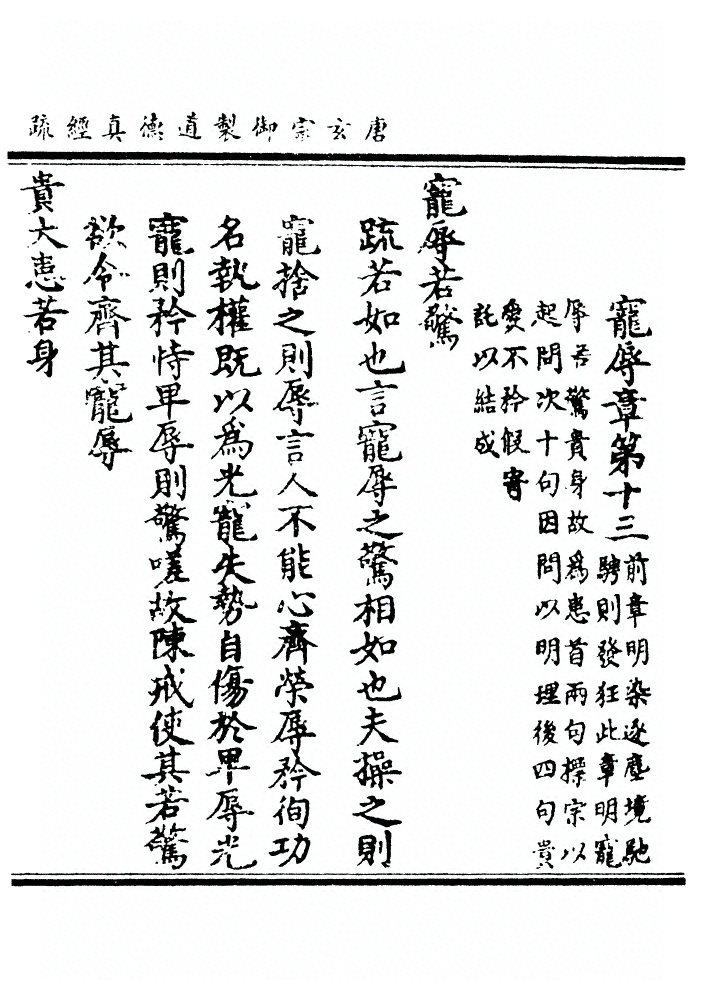 唐玄宗御製道德真經疏
寵辱章第十三
前章明染逐塵境馳
騁則發狂此章明寵
辱若驚貴身故爲患首兩句摽宗以
起問次十句因問以明理後四句貴
愛不矜假寄
託以結成
寵辱若驚
疏若如也言寵辱之驚相如也夫操之則
寵捨之則辱言人不能心齊榮辱矜徇功
名執權既以爲光寵失勢自傷於卑辱光
寵則矜恃卑辱則驚嗟故陳戒使其若驚
欲令齊其寵辱
貴大患若身